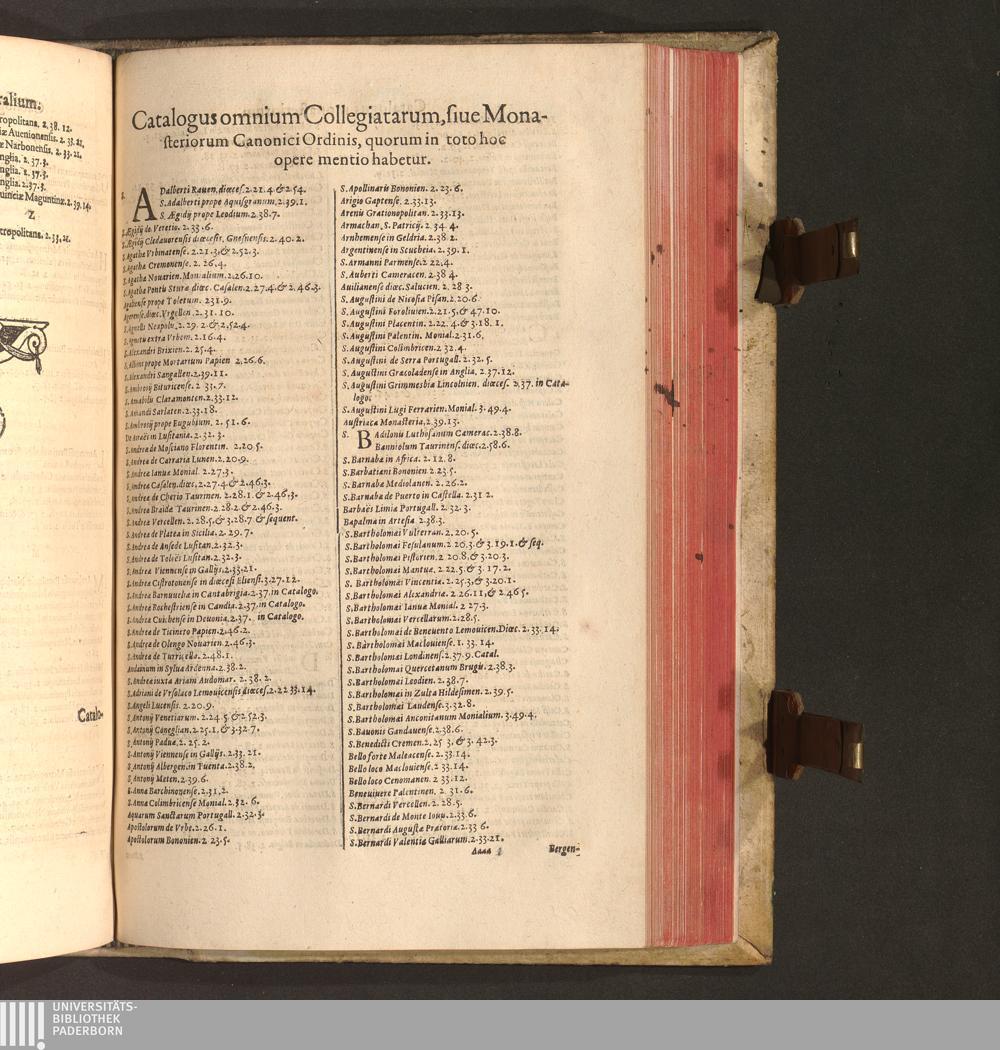 ralium.
ropolitana. 2.38.12.
iæ Auenionensis. 2.33.21.
æ Narbonensis. 2.33.21.
nglia. 2.37.3.
nglia. 2.37.3.
nglia. 2.37.3.
uinciæ Maguntinæ. 2.39.14.
Z
tropolitana. 2.33.21.
Catalo-
Catalogus omnium Collegiatarum, siue Mona-
steriorum Canonici Ordinis, quorum in toto hoc
opere mentio habetur.
S. ADalberti Rauen. diœces. 2.21.4 & 2.54.
S. Adalberti prope Aquisgranum. 2.39.1.
S. Ægidij prope Leodium. 2.38.7.
S. Ægidij de Veretio. 2.33.6.
S. Ægidij Cledauorensis diœcesis, Gnesnensis. 2.40.2.
S. Agatha Vrbinatense. 2.21.3. & 2.52.3.
S. Agatha Cremonense. 2.26.4.
S. Agatha Nouarien. Monialium. 2.26.10.
S. Agatha Pontis Sturæ, diœc. Casalen. 2.27.4. & 2.46.3.
Agalense prope Toletum. 2.31.9.
Agerense, diœc. Vrgellen. 2.31.10.
S. Agnelli Neapolis. 2.29.2. & 2.52.4.
S. Agnetis extra Vrbem. 2.16.4.
S. Alexandri Brixien. 2.25.4.
S. Albini prope Mortarium Papien 2.26.6.
S. Alexandri Sangallen. 2.39.11.
S. Ambrosij Bituricense. 2 33.7.
S. Amabilis Claramonten. 2.33.12.
S. Amandi Sarlaten. 2.33.18.
S. Ambrosij prope Eugubium. 2.51.6.
in Lusitania. 2.32.3.
S. Andreæ de Mosciano Florentin. 2.20.5.
S. Andreæ de Carraria Lunen. 2.20.9.
S. Andreæ Ianuæ Monial. 2.27.3.
S. Andreæ Casalen. diœc. 2.27.4. & 2.46.3.
S. Andreæ de Cherio Taurinen. 2.28.1. & 2.46.3.
S. Andreæ Braidæ Taurinen. 2.28.2. & 2.46.3.
S. Andreæ Vercellen. 2.28.5. & 3.28.7 & sequent.
S. Andreæ de Platea in Sicilia. 2.29.7.
S. Andreæ de Ansede Lusitan. 2.32.3.
S. Andreæ de Lusitan. 2.32.3.
S. Andreæ Viennense in Gallijs. 2.33.21.
S. Andreæ Cistrotonense in diœcesi Eliensi. 3.27.12.
S. Andreæ Barnuuelia in Cantabrigia. 2.37. in Catalogo.
S. Andreæ Rochestriense in Candia. 2.37. in Catalogo.
S. Andreæ Cuichense in Deuonia. 2.37. in Catalogo.
S. Andreæ de Ticineto Papien. 2.46.2.
S. Andreæ de Olengo Nouarien. 2.46.3.
S. Andreæ de Turricella. 2.48.1.
Andainum in Sylua Ardenna. 2.38.2.
S. Andreæ iuxta Ariam Audomar. 2.38.2.
S. Adriani de Vrsolaco Lemouicensis diœces. 2.22 33.14.
S. Angeli Lucensis. 2.20.9.
S. Antonij Venetiarum. 2.24.5. & 2.52.3.
S. Antonij Coneglian. 2.25.1. & 3.32.7.
S. Antonij Paduæ. 2.25.2.
S. Antonij Viennense in Gallijs. 2.33.21.
S. Antonij Albergen. in Tuenta. 2.38.2.
S. Antonij Meten. 2.39.6.
S. Annæ Barchinonense. 2.31.2.
S. Annæ Colimbricense Monial. 2.32.6.
Aquarum Sanctarum Portugall. 2.32.3.
Apostolorum de Vrbe. 2.26.1.
Apostolorum Bononien. 2 23.5.
S. Apollinaris Bononien. 2.23.6.
Arigio Gaptense. 2.33.13.
Arenis Gratianopolitan. 2.33.13.
Armachan. S. Patricij. 2 34.4.
Arnhemense in Geldria. 2.38 2.
Argentinense in Scucbeia. 2.39.1.
S. Armanni Parmense. 2 22.4.
S. Auberti Cameracen. 2.38 4.
Auilianense diœc. Salucien. 2.28 3.
S. Augustini de Nicosia Pisan. 2.20.6.
S. Augustini Foroliuien. 2.21.5. & 47.10.
S. Augustini Placentin. 2.22.4. & 3.18.1.
S. Augustini Palentin. Monial. 2.31.6.
S. Augustini Colimbricen. 2.32.4.
S. Augustini de Serra Portugall. 2.32.5.
S. Augustini Gracoladense in Anglia. 2.37.12.
S. Augustini Grimmesbiæ Lincolnien. diœces. 2.37. in Cata-
logo.
S. Augustini Lugi Ferrarien. Monial. 3.49.4.
Austriaca Monasteria. 2.39.13.
S. BAdilonis Luthosanum Camerac. 2.38.8.
Banniolum Taurinens. diœc. 2.58.6.
S. Barnabæ in Africa. 2.12.8.
S. Barbatiani Bononien. 2.23.5.
S. Barnabæ Mediolanen. 2.26.2.
S. Barnabæ de Puerto in Castella. 2.31 2.
Limia Portugall. 2.32.3.
Bapalma in Artesia 2.38.3.
S. Bartholomæi Vulterran. 2.20.5.
S. Bartholomæi Fesulanum. 2 26.3. & 3.19.1. & seq.
S. Bartholomæi Pistorien. 2 20.8. & 3.20.3.
S. Bartholomæi Mantuæ. 2 22.5. & 3.17.2.
S. Bartholomæi Vincentiæ. 2.25.3, & 3.20.1.
S. Bartholomæi Alexandriæ. 2.26.11. & 2.46 5.
S. Bartholomæi Ianuæ Monial. 2 27.3.
S. Bartholomæi Vercellarum. 2.28.5.
S. Bartholomæi de Beneuento Lemouicen. Diœc. 2.33.14.
S. Bartholomæi Maclouiense. 1.33.14.
S. Bartholomæi Londinens. 2.37.9. Catal.
S. Bartholomæi Quercetanum Brugis. 2.38.3.
S. Bartholomæi Leodien. 2.38.7.
S. Bartholomæi in Zulta Hildesimen. 2.39.5.
S. Bartholomæi Laudense. 3.32.8.
S. Bartholomæi Anconitanum Monialium. 3.49.4.
S. Bauonis Gandauense. 2.38.6.
S. Benedicti Cremen. 2.25 3. & 3.42.3.
Bello forte Maleacense. 2.33.14.
Bello loco Maclouiense. 2 33.14.
Bello loco Cenomanen. 2 33.12.
Beneuiuere Palentinen. 2.31.6.
S. Bernardi Vercellen. 2.28.5.
S. Bernardi de Monte Iouis. 2.33.6.
S. Bernardi Augustæ Prætoriæ. 2.33 6.
S. Bernardi Valentiæ Galliarum. 2.33.21.
Aaaa
Bergen-
UNIVERSITÄTS-
BIBLIOTHEK
PADERBORN